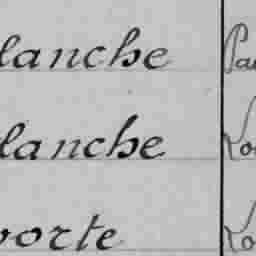 lanche Pa
lanche Ro
orte Ro